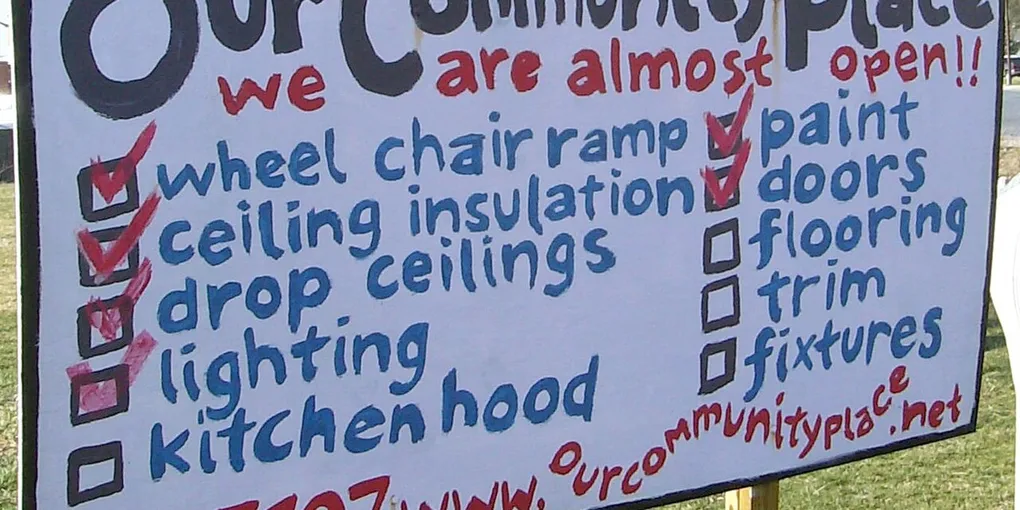 Our Community Place
we are almost open!!
wheel chair ramp
ceiling insulation
drop ceilings
lighting
kitchen hood
paint
doors
flooring
trim
fixtures
www.ourcommunityplace.net